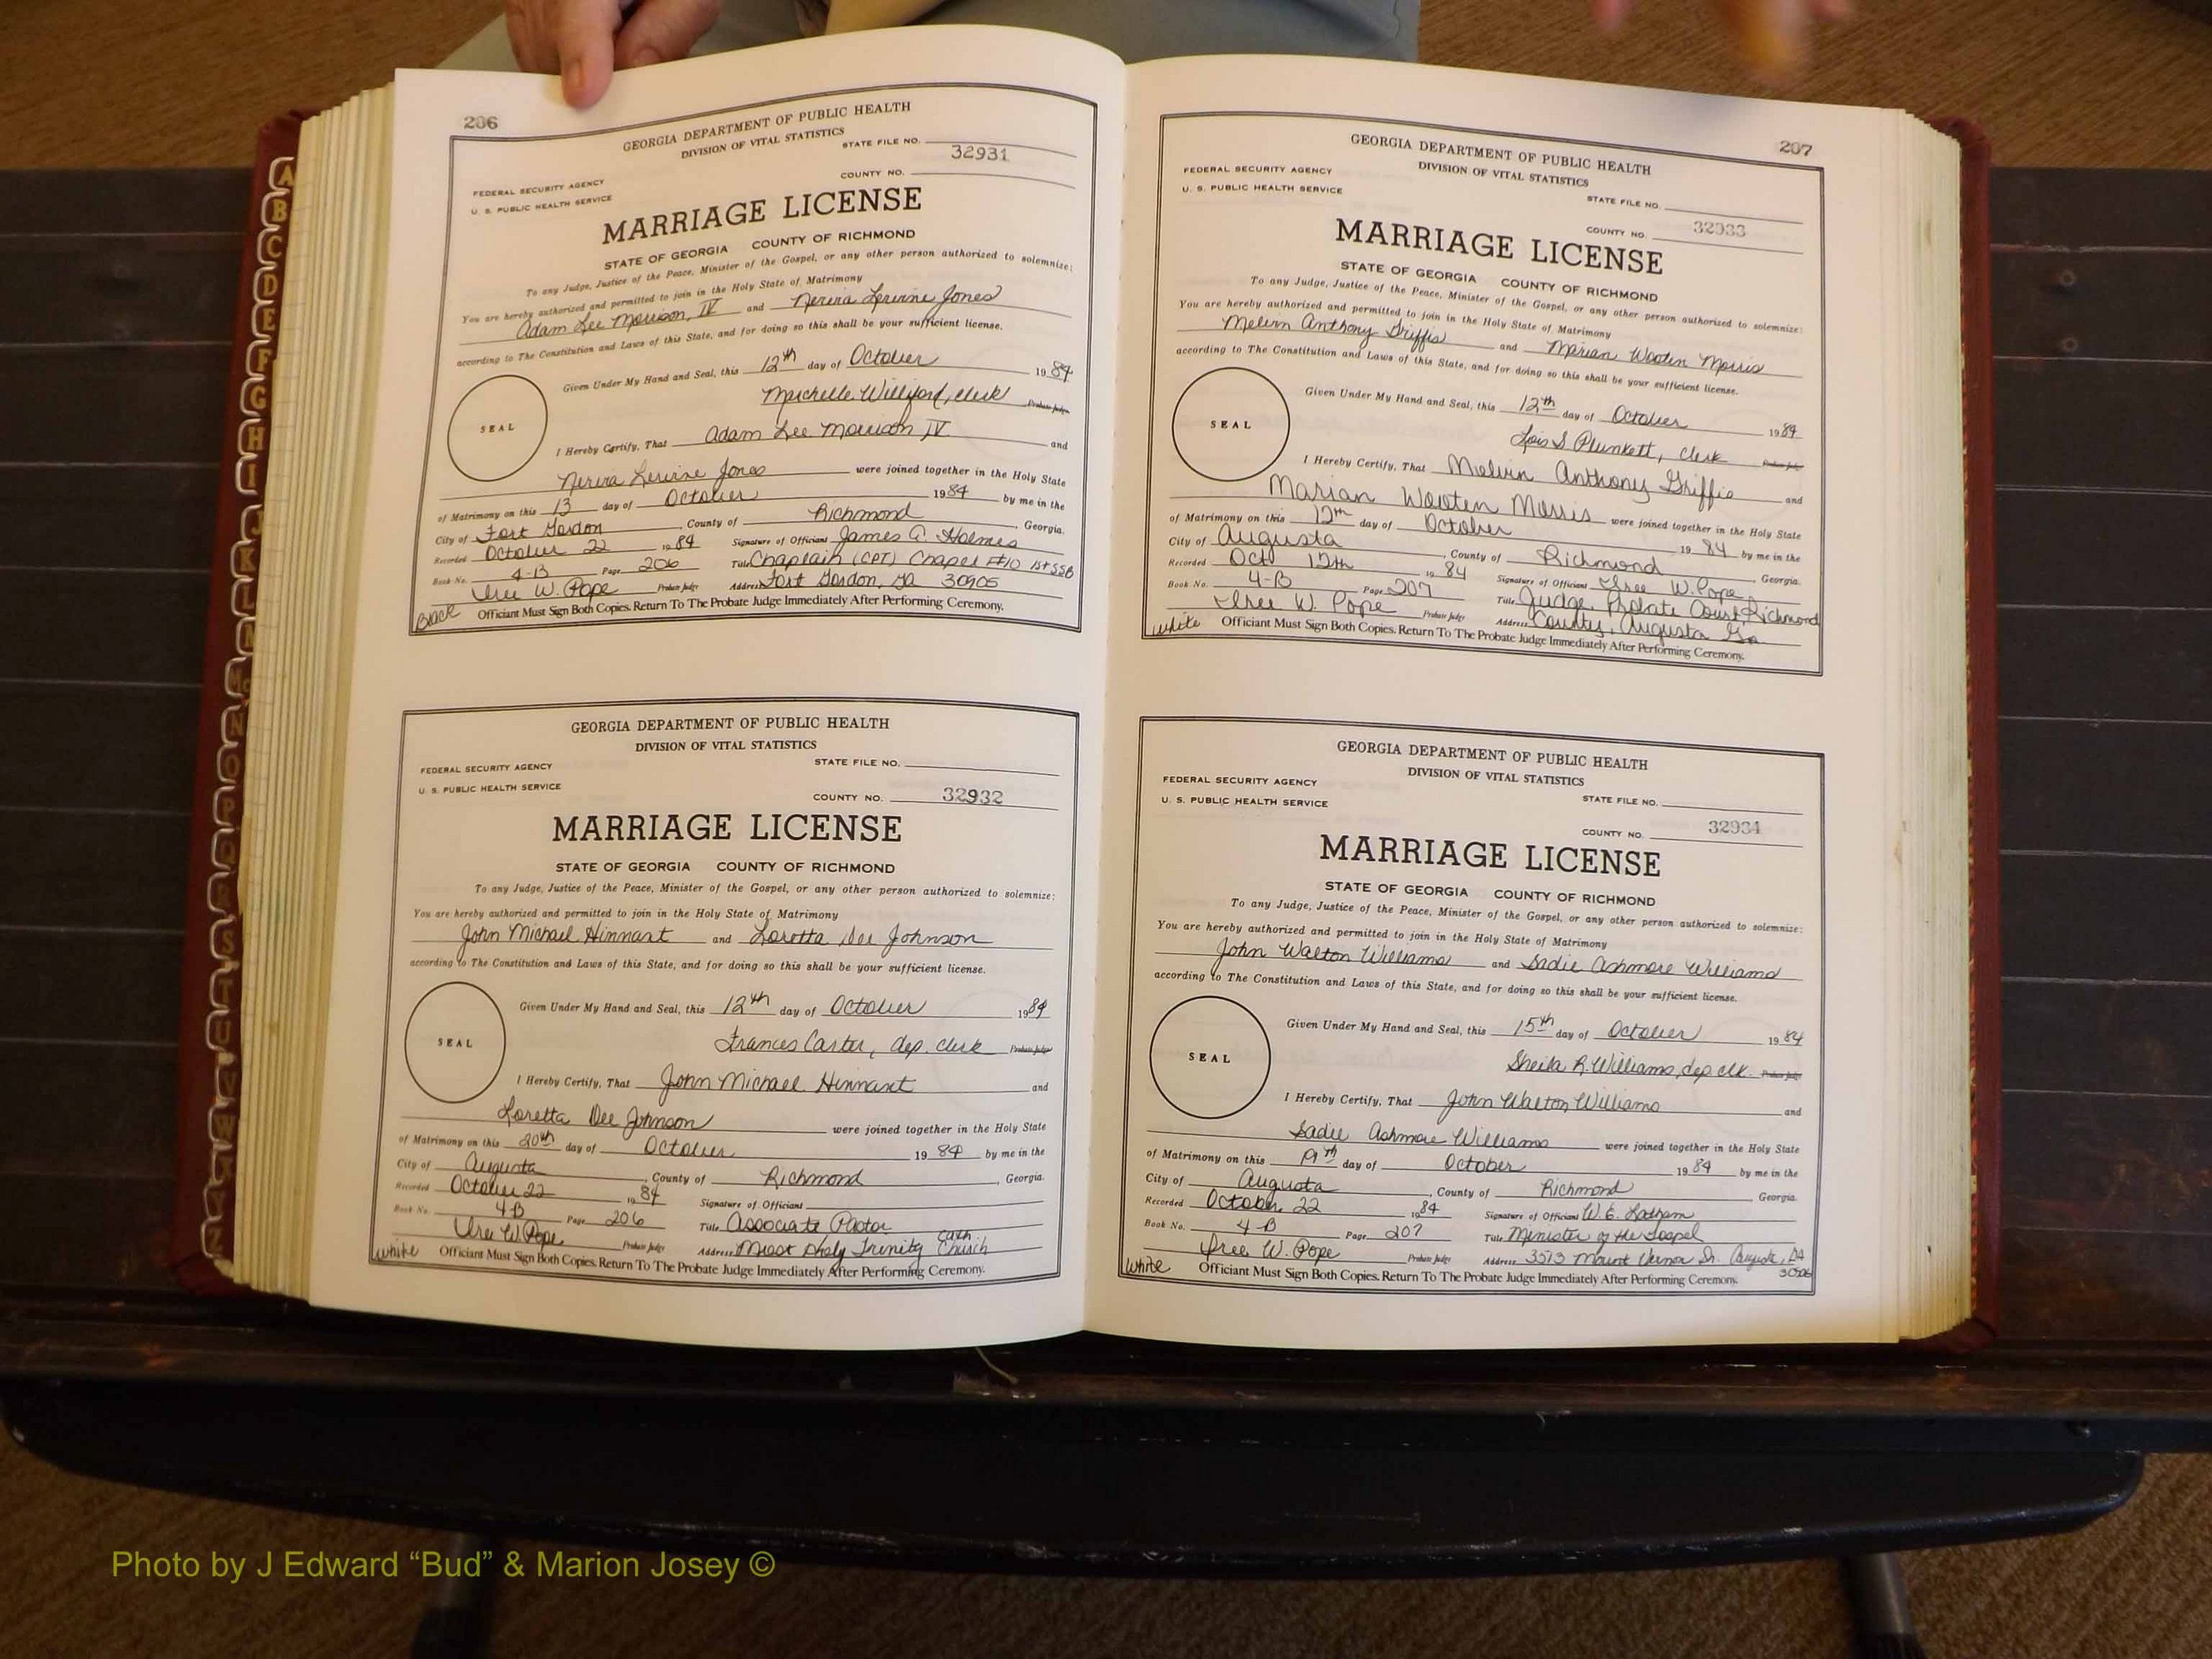 206
GEORGIA DEPARTMENT OF PUBLIC HEALTH
DIVISION OF VITAL STATISTICS
STATE FILE NO.
32931
FEDERAL SECURITY AGENCY
COUNTY NO.
U. S. PUBLIC HEALTH SERVICE
MARRIAGE LICENSE
STATE OF GEORGIA COUNTY OF RICHMOND
To any Judge, Justice of the Peace, Minister of the Gospel, or any other person authorized to solemnize:
You are hereby authorized and permitted to join in the Holy State of Matrimony
Adam Lee Morrison, IV and Jones
according to The Constitution and Laws of this State, and for doing so this shall be your sufficient license.
Given Under My Hand and Seal, this 12th day of October 1984
SEAL
Williford, clerk Probate Judge
I Hereby Certify, That Adam Lee Morrison IV and
Jones were joined together in the Holy State
of Matrimony on this 13 day of October 1984 by me in the
City of Fort Gordon, County of Richmond, Georgia.
Recorded October 22 1984 Signature of Officiant James A. Holmes
Book No. 4-B Page 206 Title Chaplain (CPT) Chapel #10 1st SSB
Iree W. Pope Probate Judge Address Fort Gordon, GA 30905
Black Officiant Must Sign Both Copies. Return To The Probate Judge Immediately After Performing Ceremony.
GEORGIA DEPARTMENT OF PUBLIC HEALTH
DIVISION OF VITAL STATISTICS
FEDERAL SECURITY AGENCY STATE FILE NO.
U. S. PUBLIC HEALTH SERVICE COUNTY NO. 32932
MARRIAGE LICENSE
STATE OF GEORGIA COUNTY OF RICHMOND
To any Judge, Justice of the Peace, Minister of the Gospel, or any other person authorized to solemnize:
You are hereby authorized and permitted to join in the Holy State of Matrimony
John Michael Hinnant and Loretta Dee Johnson
according to The Constitution and Laws of this State, and for doing so this shall be your sufficient license.
Given Under My Hand and Seal, this 12th day of October 1984
SEAL
Frances Carter, dep. clerk Probate Judge
I Hereby Certify, That John Michael Hinnant and
Loretta Dee Johnson were joined together in the Holy State
of Matrimony on this 20th day of October 1984 by me in the
City of Augusta, County of Richmond, Georgia.
Recorded October 22 1984 Signature of Officiant
Book No. 4-B Page 206 Title Associate Pastor
Iree W. Pope Probate Judge Address Most Holy Trinity Cath Church
White Officiant Must Sign Both Copies. Return To The Probate Judge Immediately After Performing Ceremony.
207
GEORGIA DEPARTMENT OF PUBLIC HEALTH
DIVISION OF VITAL STATISTICS
FEDERAL SECURITY AGENCY
U. S. PUBLIC HEALTH SERVICE
STATE FILE NO.
COUNTY NO. 32933
MARRIAGE LICENSE
STATE OF GEORGIA COUNTY OF RICHMOND
To any Judge, Justice of the Peace, Minister of the Gospel, or any other person authorized to solemnize:
You are hereby authorized and permitted to join in the Holy State of Matrimony
Melvin Anthony Griffis and Marian Wooten Morris
according to The Constitution and Laws of this State, and for doing so this shall be your sufficient license.
Given Under My Hand and Seal, this 12th day of October 1984
SEAL
Lois S Plunkett, clerk Probate Judge
I Hereby Certify, That Melvin Anthony Griffis and
Marian Wooten Morris were joined together in the Holy State
of Matrimony on this 12th day of October 1984 by me in the
City of Augusta, County of Richmond, Georgia.
Recorded Oct 12th 1984 Signature of Officiant Iree W. Pope
Book No. 4-B Page 207 Title Judge, Probate Court, Richmond
Iree W. Pope Probate Judge Address County, Augusta Ga
White Officiant Must Sign Both Copies. Return To The Probate Judge Immediately After Performing Ceremony.
GEORGIA DEPARTMENT OF PUBLIC HEALTH
DIVISION OF VITAL STATISTICS
FEDERAL SECURITY AGENCY STATE FILE NO.
U. S. PUBLIC HEALTH SERVICE
COUNTY NO. 32934
MARRIAGE LICENSE
STATE OF GEORGIA COUNTY OF RICHMOND
To any Judge, Justice of the Peace, Minister of the Gospel, or any other person authorized to solemnize:
You are hereby authorized and permitted to join in the Holy State of Matrimony
John Walton Williams and Sadie Ashmore Williams
according to The Constitution and Laws of this State, and for doing so this shall be your sufficient license.
Given Under My Hand and Seal, this 15th day of October 1984
SEAL
Sheila R. Williams, dep clk. Probate Judge
I Hereby Certify, That John Walton Williams and
Sadie Ashmore Williams were joined together in the Holy State
of Matrimony on this 19th day of October 1984 by me in the
City of Augusta, County of Richmond Georgia.
Recorded October 22 1984 Signature of Officiant W. E. Latham
Book No. 4-B Page 207 Title Minister of the Gospel
Iree W. Pope Probate Judge Address 3513 Mount Vernon Dr. Augusta, GA 30906
White Officiant Must Sign Both Copies. Return To The Probate Judge Immediately After Performing Ceremony.
A
B
C
D
E
F
G
H
I
J
K
L
M
Mc
N
O
P
Q
R
S
T
U
V
W
X
Y
Z
Photo by J Edward “Bud” & Marion Josey ©